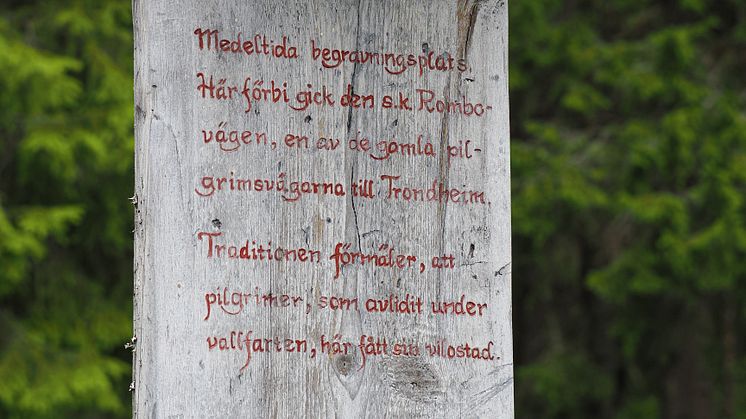 Medeltida begravningsplats.
Här förbi gick den s.k. Rombo-
vägen, en av de gamla pil-
grimsvägarna till Trondheim.
Traditionen förmäler, att
pilgrimer, som avlidit under
vallfarten, här fått sin vilostad.